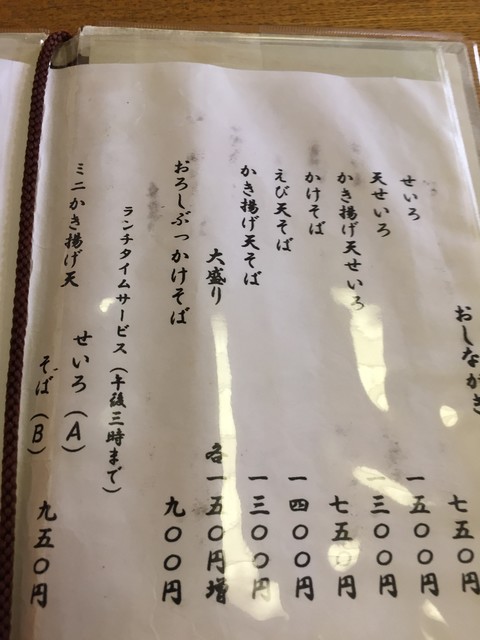 おしながき
せいろ 七五〇円
天せいろ 一五〇〇円
かき揚げ天せいろ 一三〇〇円
かけそば 七五〇円
えび天そば 一四〇〇円
かき揚げ天そば 一三〇〇円
大盛り 各一五〇円増
おろしぶっかけそば 九〇〇円
ランチタイムサービス(午後三時まで)
ミニかき揚げ天 せいろ(A)
そば(B) 九五〇円